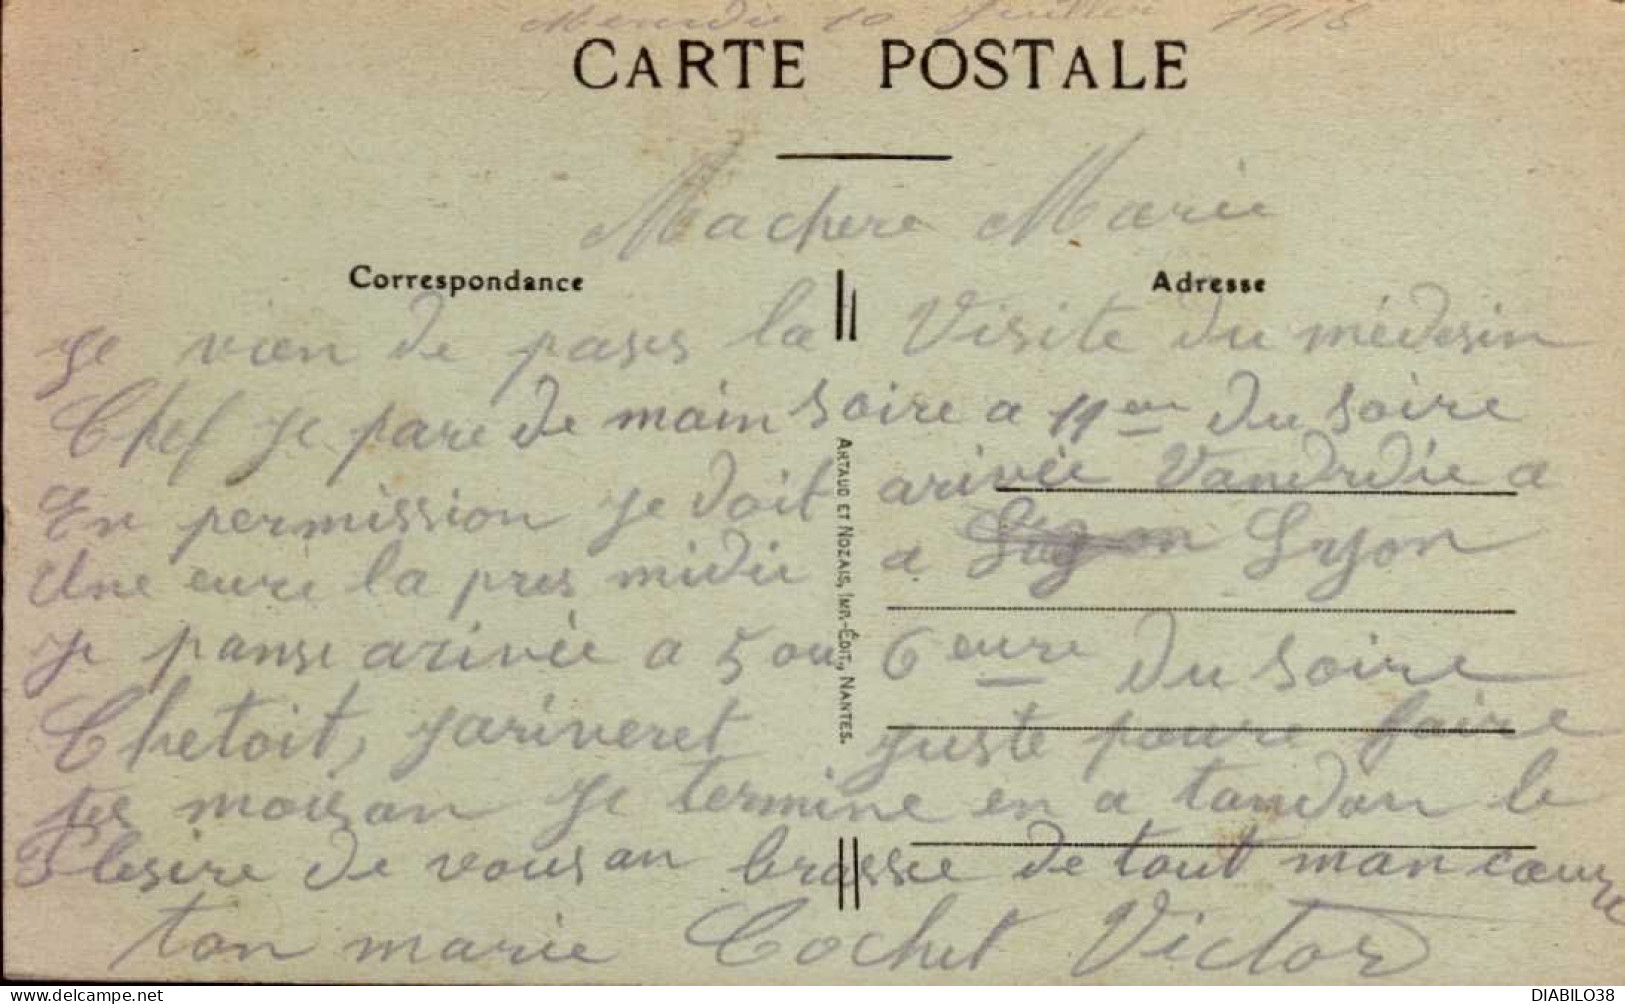 Mercredie 10 Juillet 1918
CARTE POSTALE
Machere Marie
Correspondance
Adresse
Je vien de pases la Visite du médesin
Chef Je pare de main soire a 11 eur du soire
En permission je doit arivée Vandrdie a
Une eure la pres midie a Lyon
Je panse arivée a 5 ou 6 eure du soire
Chetoit, jariveret juste poure faire
les moison Je termine en a tandan le
Plesire de vous an brassee de tout man coeure
ton marie Cochet Victor
ARTAUD ET NOZAIS, IMP.-ÉDIT., NANTES.
DIABILO38